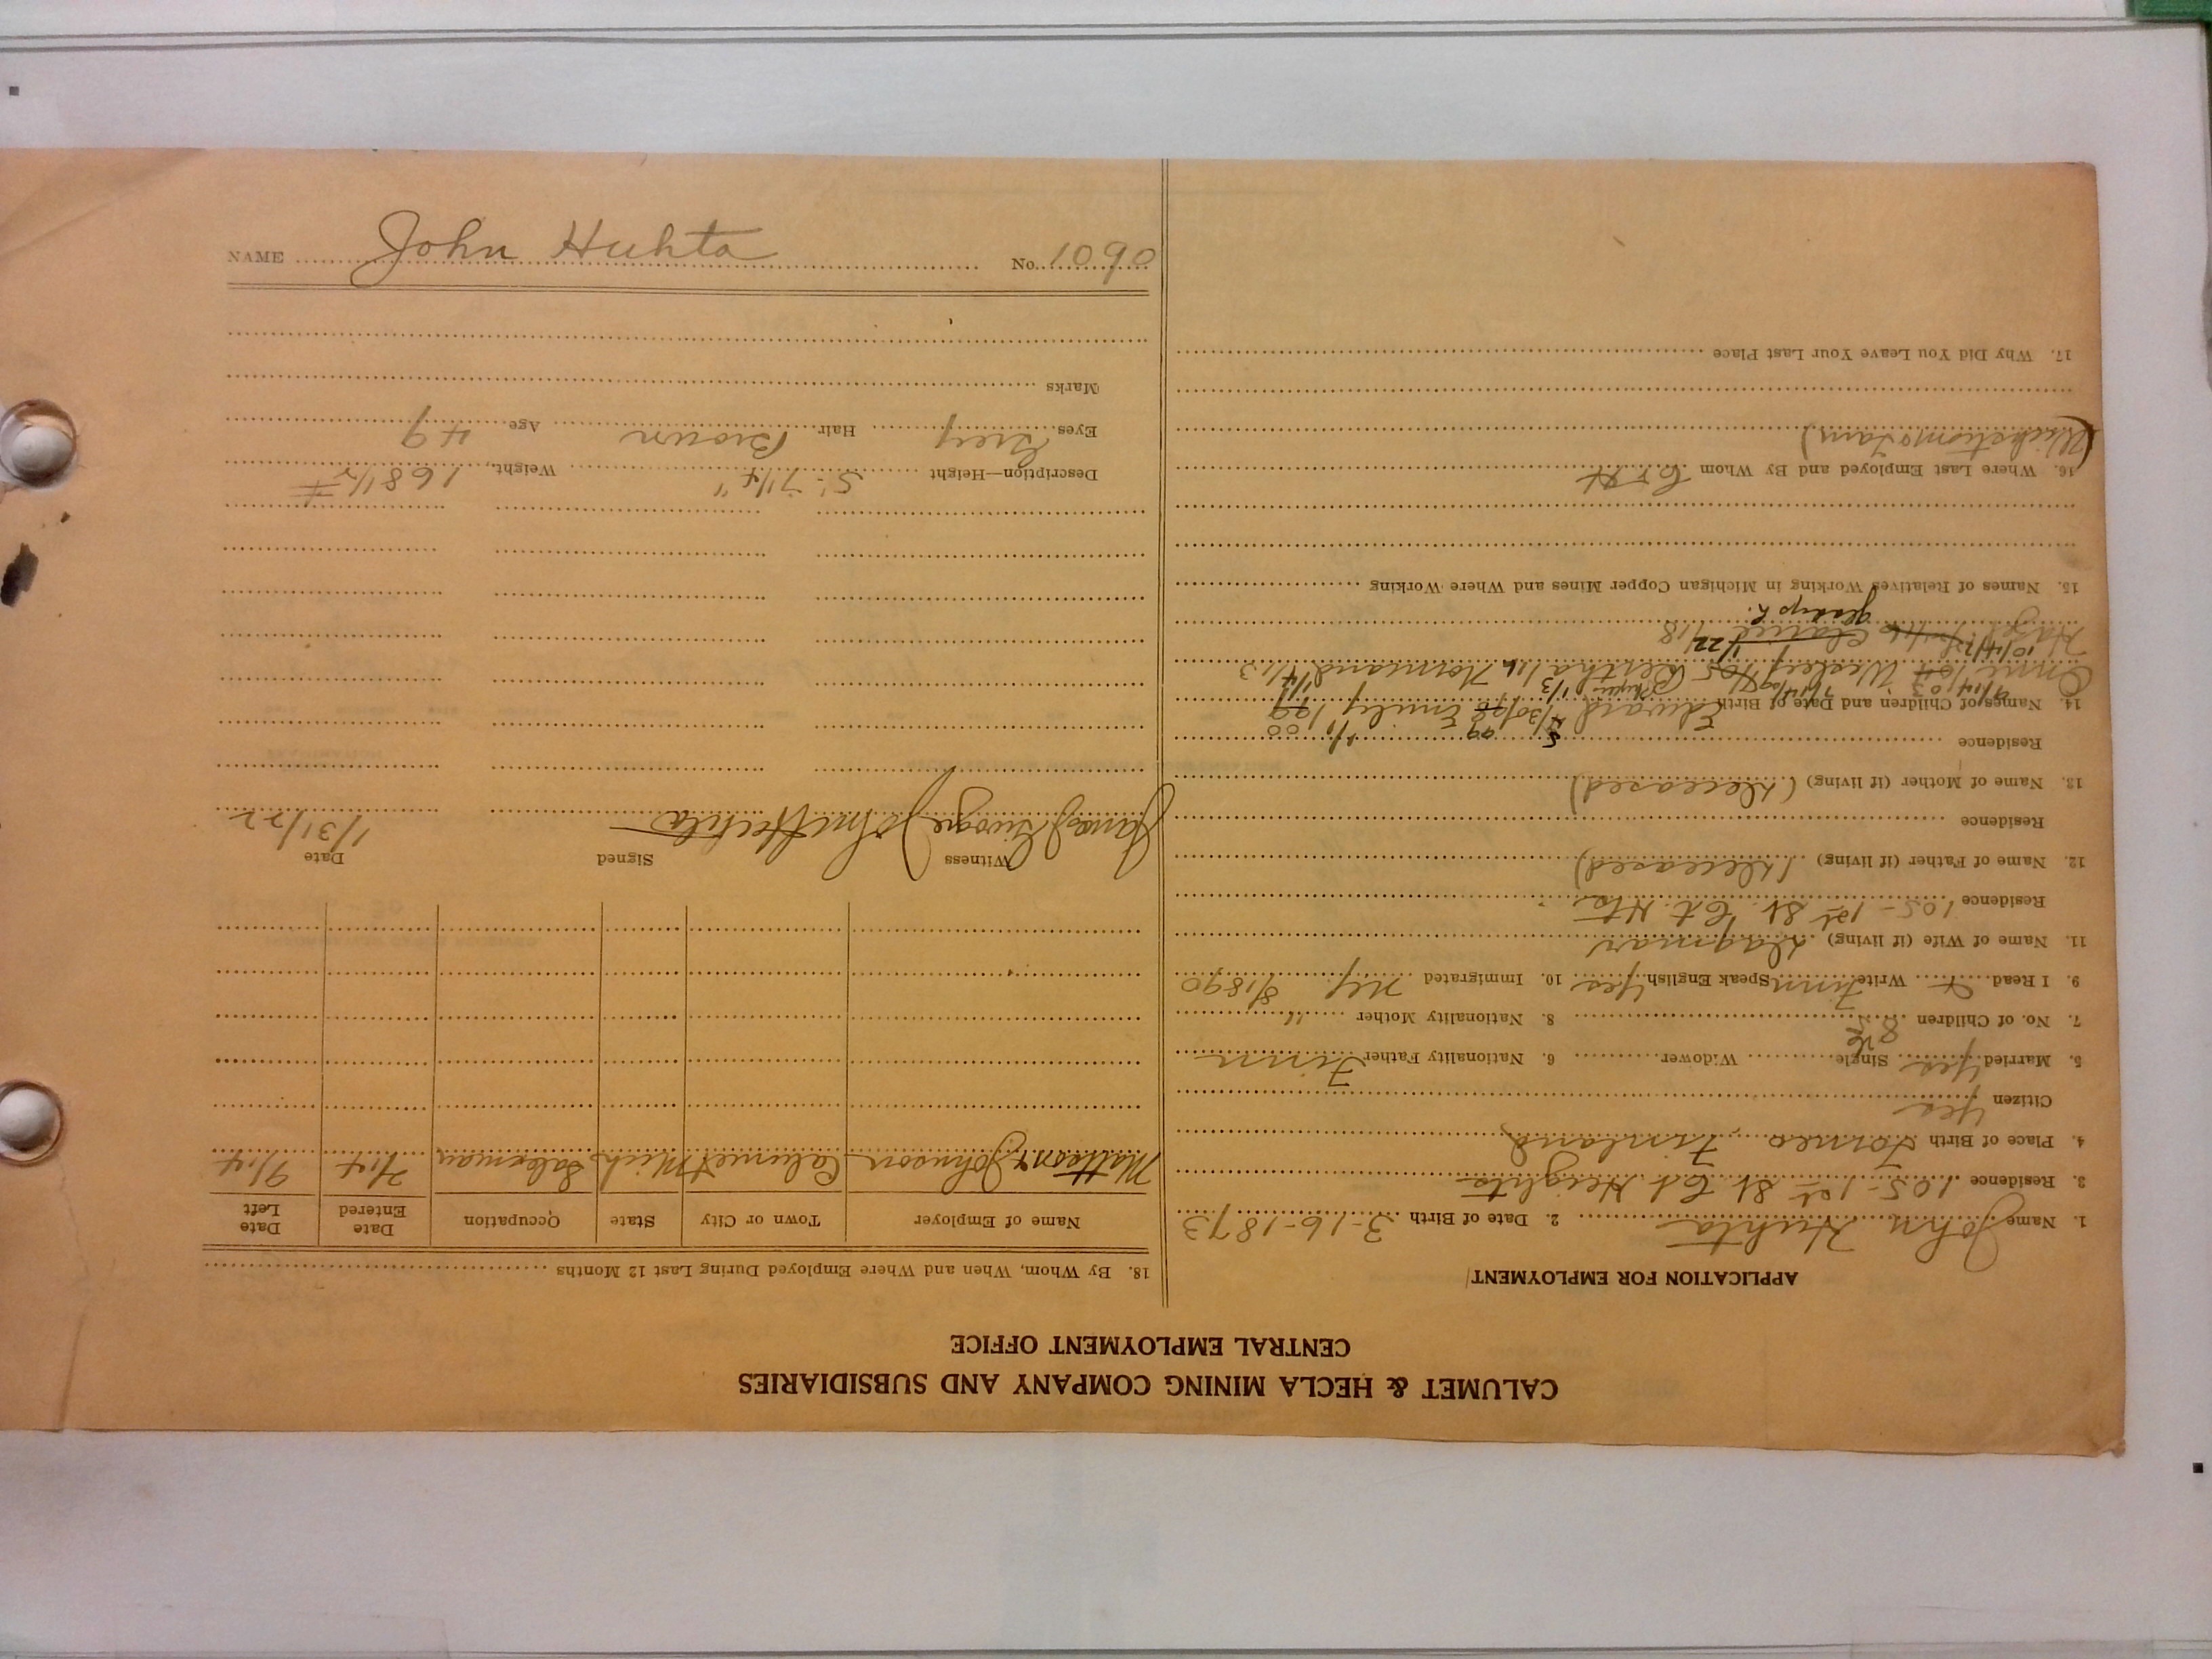 CALUMET & HECLA MINING COMPANY AND SUBSIDIARIES
CENTRAL EMPLOYMENT OFFICE
APPLICATION FOR EMPLOYMENT
1. Name John Huhta 2. Date of Birth 3-16-1873
3. Residence 105-1st St. Ct. Heights
4. Place of Birth Torneo, Finland
Citizen Yes
5. Married Yes Single Widower 6. Nationality Father Finn
7. No. of Children 8 8. Nationality Mother "
9. I Read Write Finn Speak English Yes 10. Immigrated NY. 8/1890
11. Name of Wife (if living) Dagmar
Residence 105-1st St. Ct. Hts.
12. Name of Father (if living) (Deceased)
Residence
13. Name of Mother (if living) (Deceased)
Residence
14. Names of Children and Date of Birth Edward Emily
Wesley Bertha Normand
Hazel
Gladys
15. Names of Relatives Working in Michigan Copper Mines and Where Working
16. Where Last Employed and By Whom C & H
17. Why Did You Leave Your Last Place
18. By Whom, When and Where Employed During Last 12 Months
Name of Employer Town or City State Occupation Date Entered Date Left
Johnson Calumet Mich Salesman 2/14 9/14
Witness Signed Date
James John Huhta 1/31/22
Description—Height 5'-7 1/4" Weight 168 1/2 #
Eyes Grey Hair Brown Age 49
Marks
NAME John Huhta No. 1090